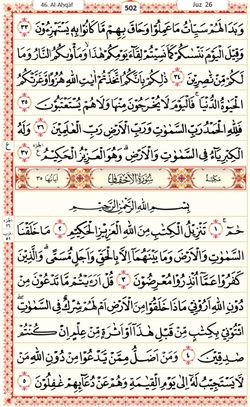 46. Al-Ahqāf 502 Juz 26
وَبَدَا لَهُمْ سَيِّاٰتُ مَا عَمِلُوْا وَحَاقَ بِهِمْ مَّا كَانُوْا بِهٖ يَسْتَهْزِءُوْنَ ٣٣
وَقِيْلَ الْيَوْمَ نَنْسٰىكُمْ كَمَا نَسِيْتُمْ لِقَآءَ يَوْمِكُمْ هٰذَا وَمَاْوٰىكُمُ النَّارُ وَمَا
لَكُمْ مِّنْ نّٰصِرِيْنَ ٣٤ ذٰلِكُمْ بِاَنَّكُمُ اتَّخَذْتُمْ اٰيٰتِ اللّٰهِ هُزُوًا وَّغَرَّتْكُمُ
الْحَيٰوةُ الدُّنْيَا ۚ فَالْيَوْمَ لَا يُخْرَجُوْنَ مِنْهَا وَلَا هُمْ يُسْتَعْتَبُوْنَ ٣٥
فَلِلّٰهِ الْحَمْدُ رَبِّ السَّمٰوٰتِ وَرَبِّ الْاَرْضِ رَبِّ الْعٰلَمِيْنَ ٣٦ وَلَهُ
الْكِبْرِيَآءُ فِي السَّمٰوٰتِ وَالْاَرْضِ ۪ وَهُوَ الْعَزِيْزُ الْحَكِيْمُ ٣٧
مَكِّيَّةٌ سُوْرَةُ الْاَحْقَافِ اٰيَاتُهَا ٣٥
بِسْمِ اللّٰهِ الرَّحْمٰنِ الرَّحِيْمِ
حٰمٓ ١ تَنْزِيْلُ الْكِتٰبِ مِنَ اللّٰهِ الْعَزِيْزِ الْحَكِيْمِ ٢ مَا خَلَقْنَا
السَّمٰوٰتِ وَالْاَرْضَ وَمَا بَيْنَهُمَآ اِلَّا بِالْحَقِّ وَاَجَلٍ مُّسَمًّى ۭ وَالَّذِيْنَ
كَفَرُوْا عَمَّآ اُنْذِرُوْا مُعْرِضُوْنَ ٣ قُلْ اَرَءَيْتُمْ مَّا تَدْعُوْنَ مِنْ
دُوْنِ اللّٰهِ اَرُوْنِيْ مَاذَا خَلَقُوْا مِنَ الْاَرْضِ اَمْ لَهُمْ شِرْكٌ فِي السَّمٰوٰتِ ۭ
اِيْتُوْنِيْ بِكِتٰبٍ مِّنْ قَبْلِ هٰذَآ اَوْ اَثٰرَةٍ مِّنْ عِلْمٍ اِنْ كُنْتُمْ
صٰدِقِيْنَ ٤ وَمَنْ اَضَلُّ مِمَّنْ يَّدْعُوْا مِنْ دُوْنِ اللّٰهِ مَنْ
لَّا يَسْتَجِيْبُ لَهٗٓ اِلٰى يَوْمِ الْقِيٰمَةِ وَهُمْ عَنْ دُعَآئِهِمْ غٰفِلُوْنَ ٥